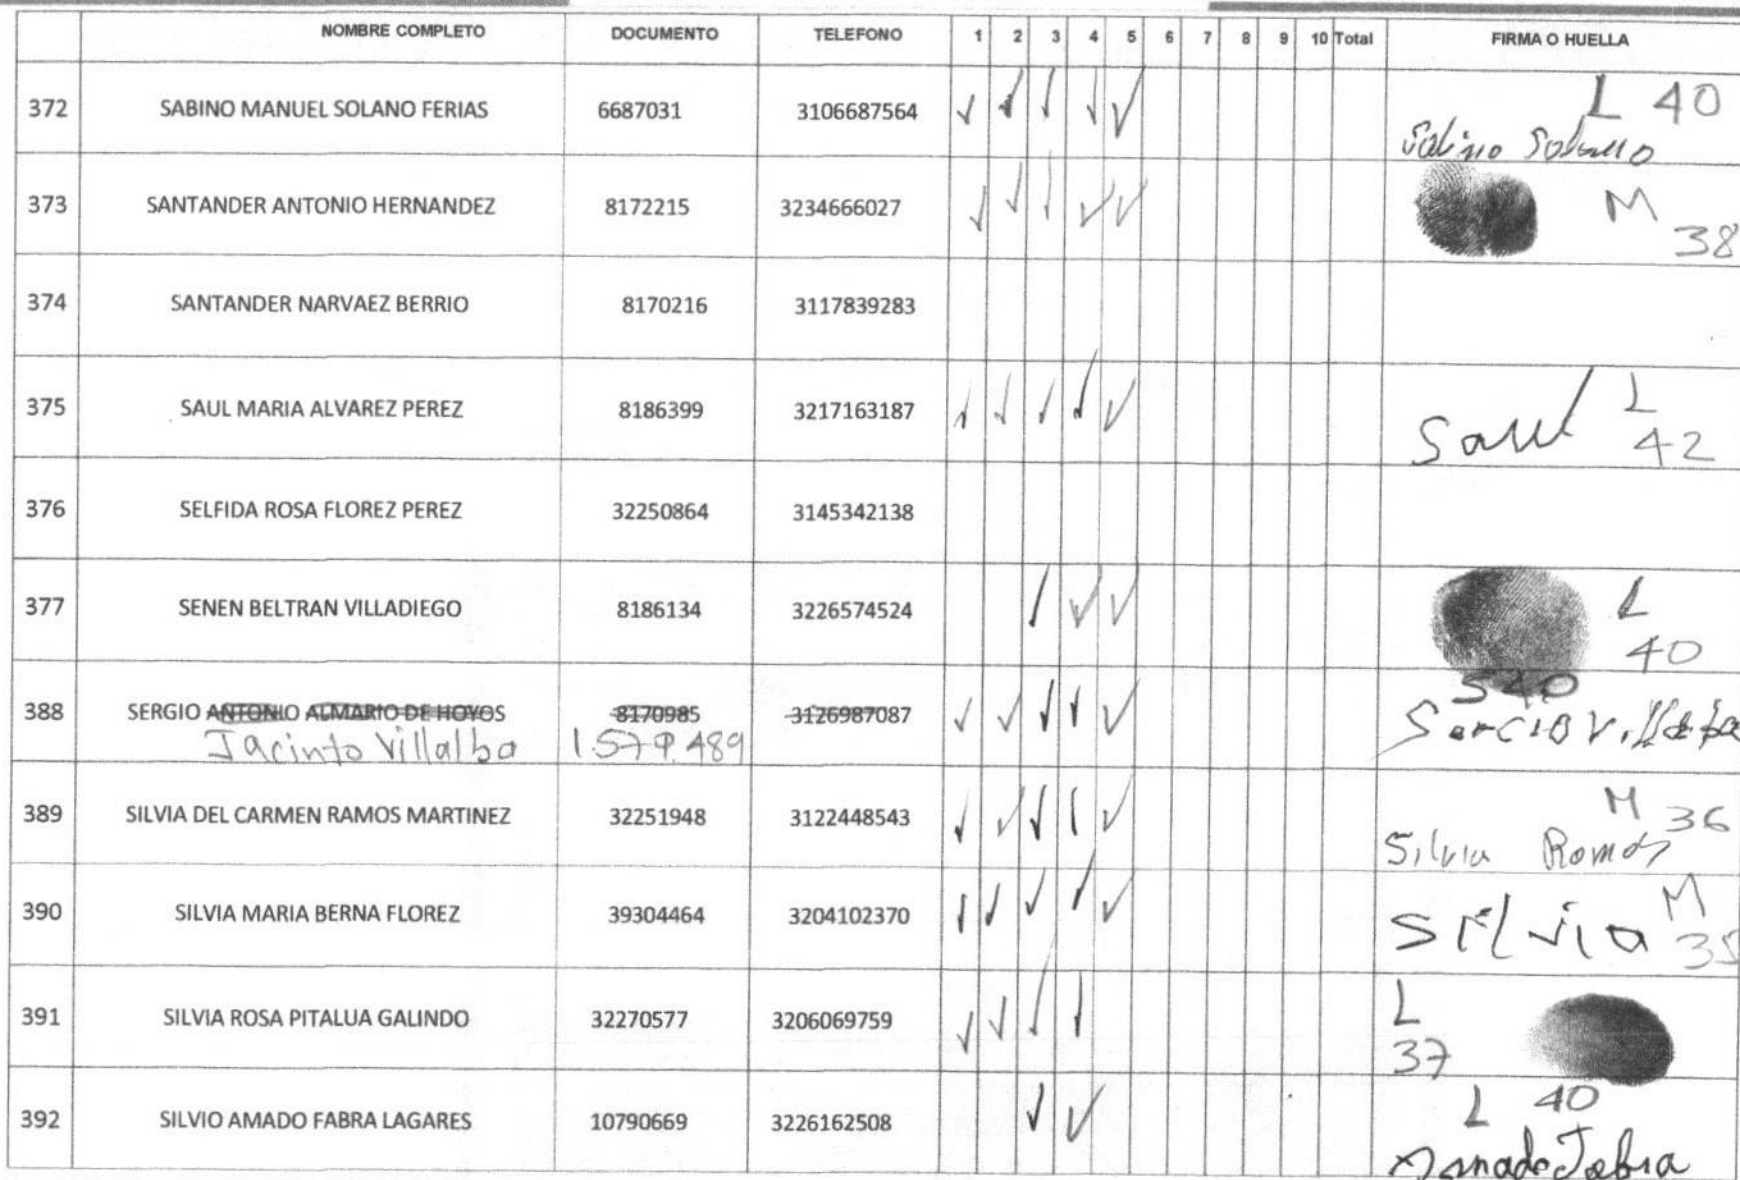 NOMBRE COMPLETO DOCUMENTO TELEFONO 1 2 3 4 5 6 7 8 9 10 Total FIRMA O HUELLA
372 SABINO MANUEL SOLANO FERIAS 6687031 3106687564 ✓ ✓ ✓ ✓ ✓ L 40
Sabino Solano
373 SANTANDER ANTONIO HERNANDEZ 8172215 3234666027 ✓ ✓ ✓ ✓ ✓ M
38
374 SANTANDER NARVAEZ BERRIO 8170216 3117839283
375 SAUL MARIA ALVAREZ PEREZ 8186399 3217163187 ✓ ✓ ✓ ✓ ✓ Saul L
42
376 SELFIDA ROSA FLOREZ PEREZ 32250864 3145342138
377 SENEN BELTRAN VILLADIEGO 8186134 3226574524 ✓ ✓ ✓ L
40
388 SERGIO ANTONIO ALMARIO DE HOYOS 8170985 3126987087 ✓ ✓ ✓ ✓ ✓ 40
Jacinto Villalba 1.579.489
389 SILVIA DEL CARMEN RAMOS MARTINEZ 32251948 3122448543 ✓ ✓ ✓ ✓ ✓ M 36
Silvia Ramos
390 SILVIA MARIA BERNA FLOREZ 39304464 3204102370 ✓ ✓ ✓ ✓ ✓ Silvia M
35
391 SILVIA ROSA PITALUA GALINDO 32270577 3206069759 ✓ ✓ ✓ ✓ L
37
392 SILVIO AMADO FABRA LAGARES 10790669 3226162508 ✓ ✓ L 40
Amado Fabra